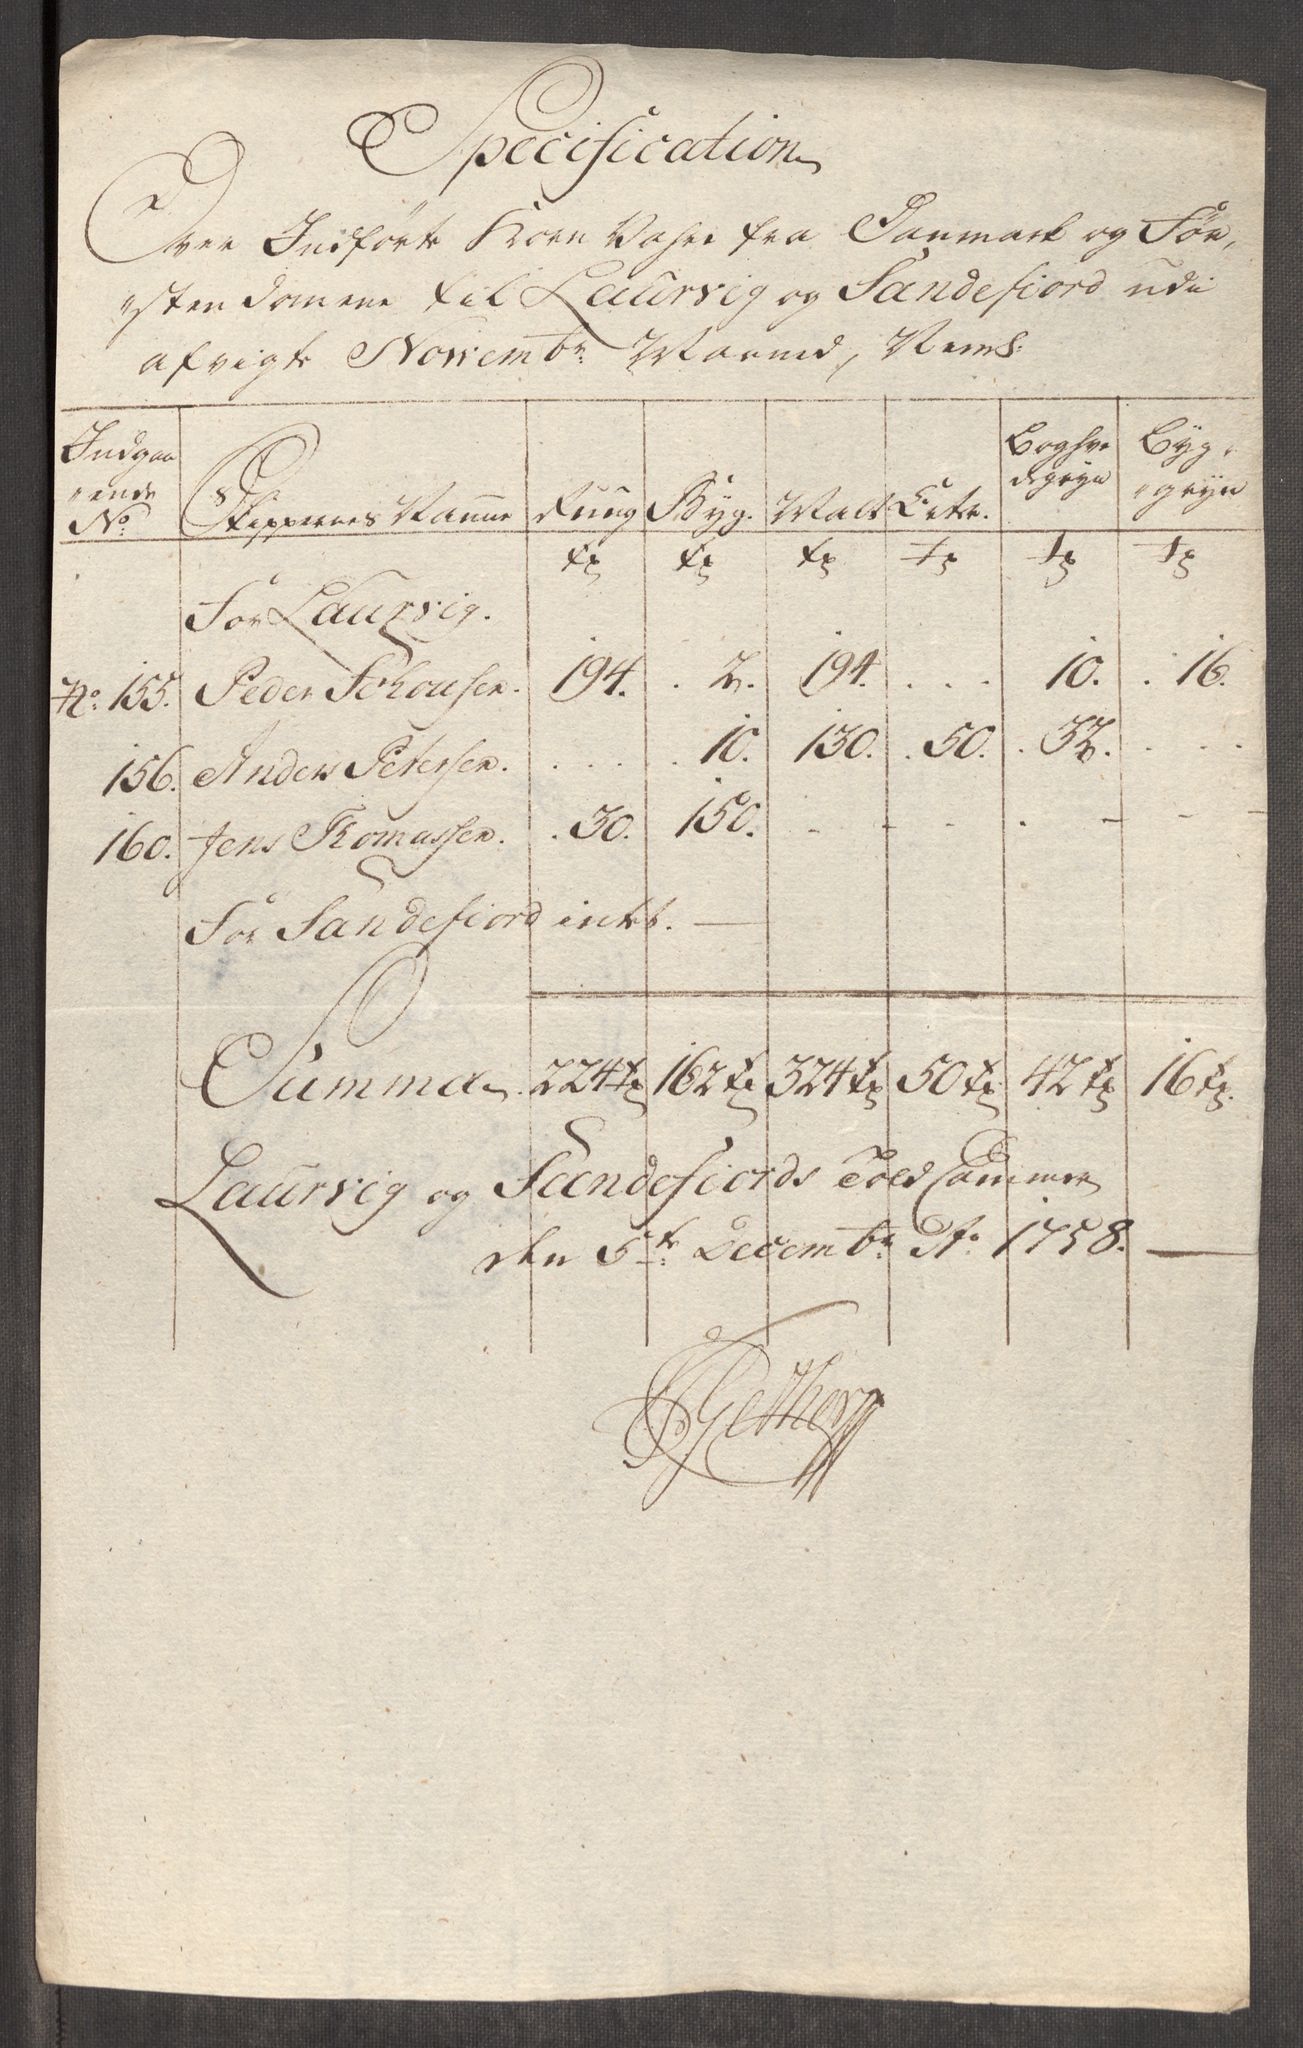 Specification
Over Indførte Korn Vahre fra Danmark og Før,
"stendomene til Laurvig og Sandefiord udi
afvigte Novembr Maaned, Neml:
Indgaa
"ende
No. Skippernes Nafne Rug Byg. Malt Erter. Boghve
degryn Byg,
"gryn
tr tr tr tr tr tr
For Laurvig.
No. 155. Peder Schousen. 194. . 2. 194. . . . 10. . 16.
156. Anders Petersen. . . . . 10. 130. . 50. . 32. . . .
160. Jens Thomassen. . 30. 150. - - - . - - -
For Sandefiord intet. —
Summa. 224 tr 162 tr 324 tr 50 tr. 42 tr 16 tr.
Laurvig og Sandefiords Told Cammer
den 5te Decembr Ao. 1758. —